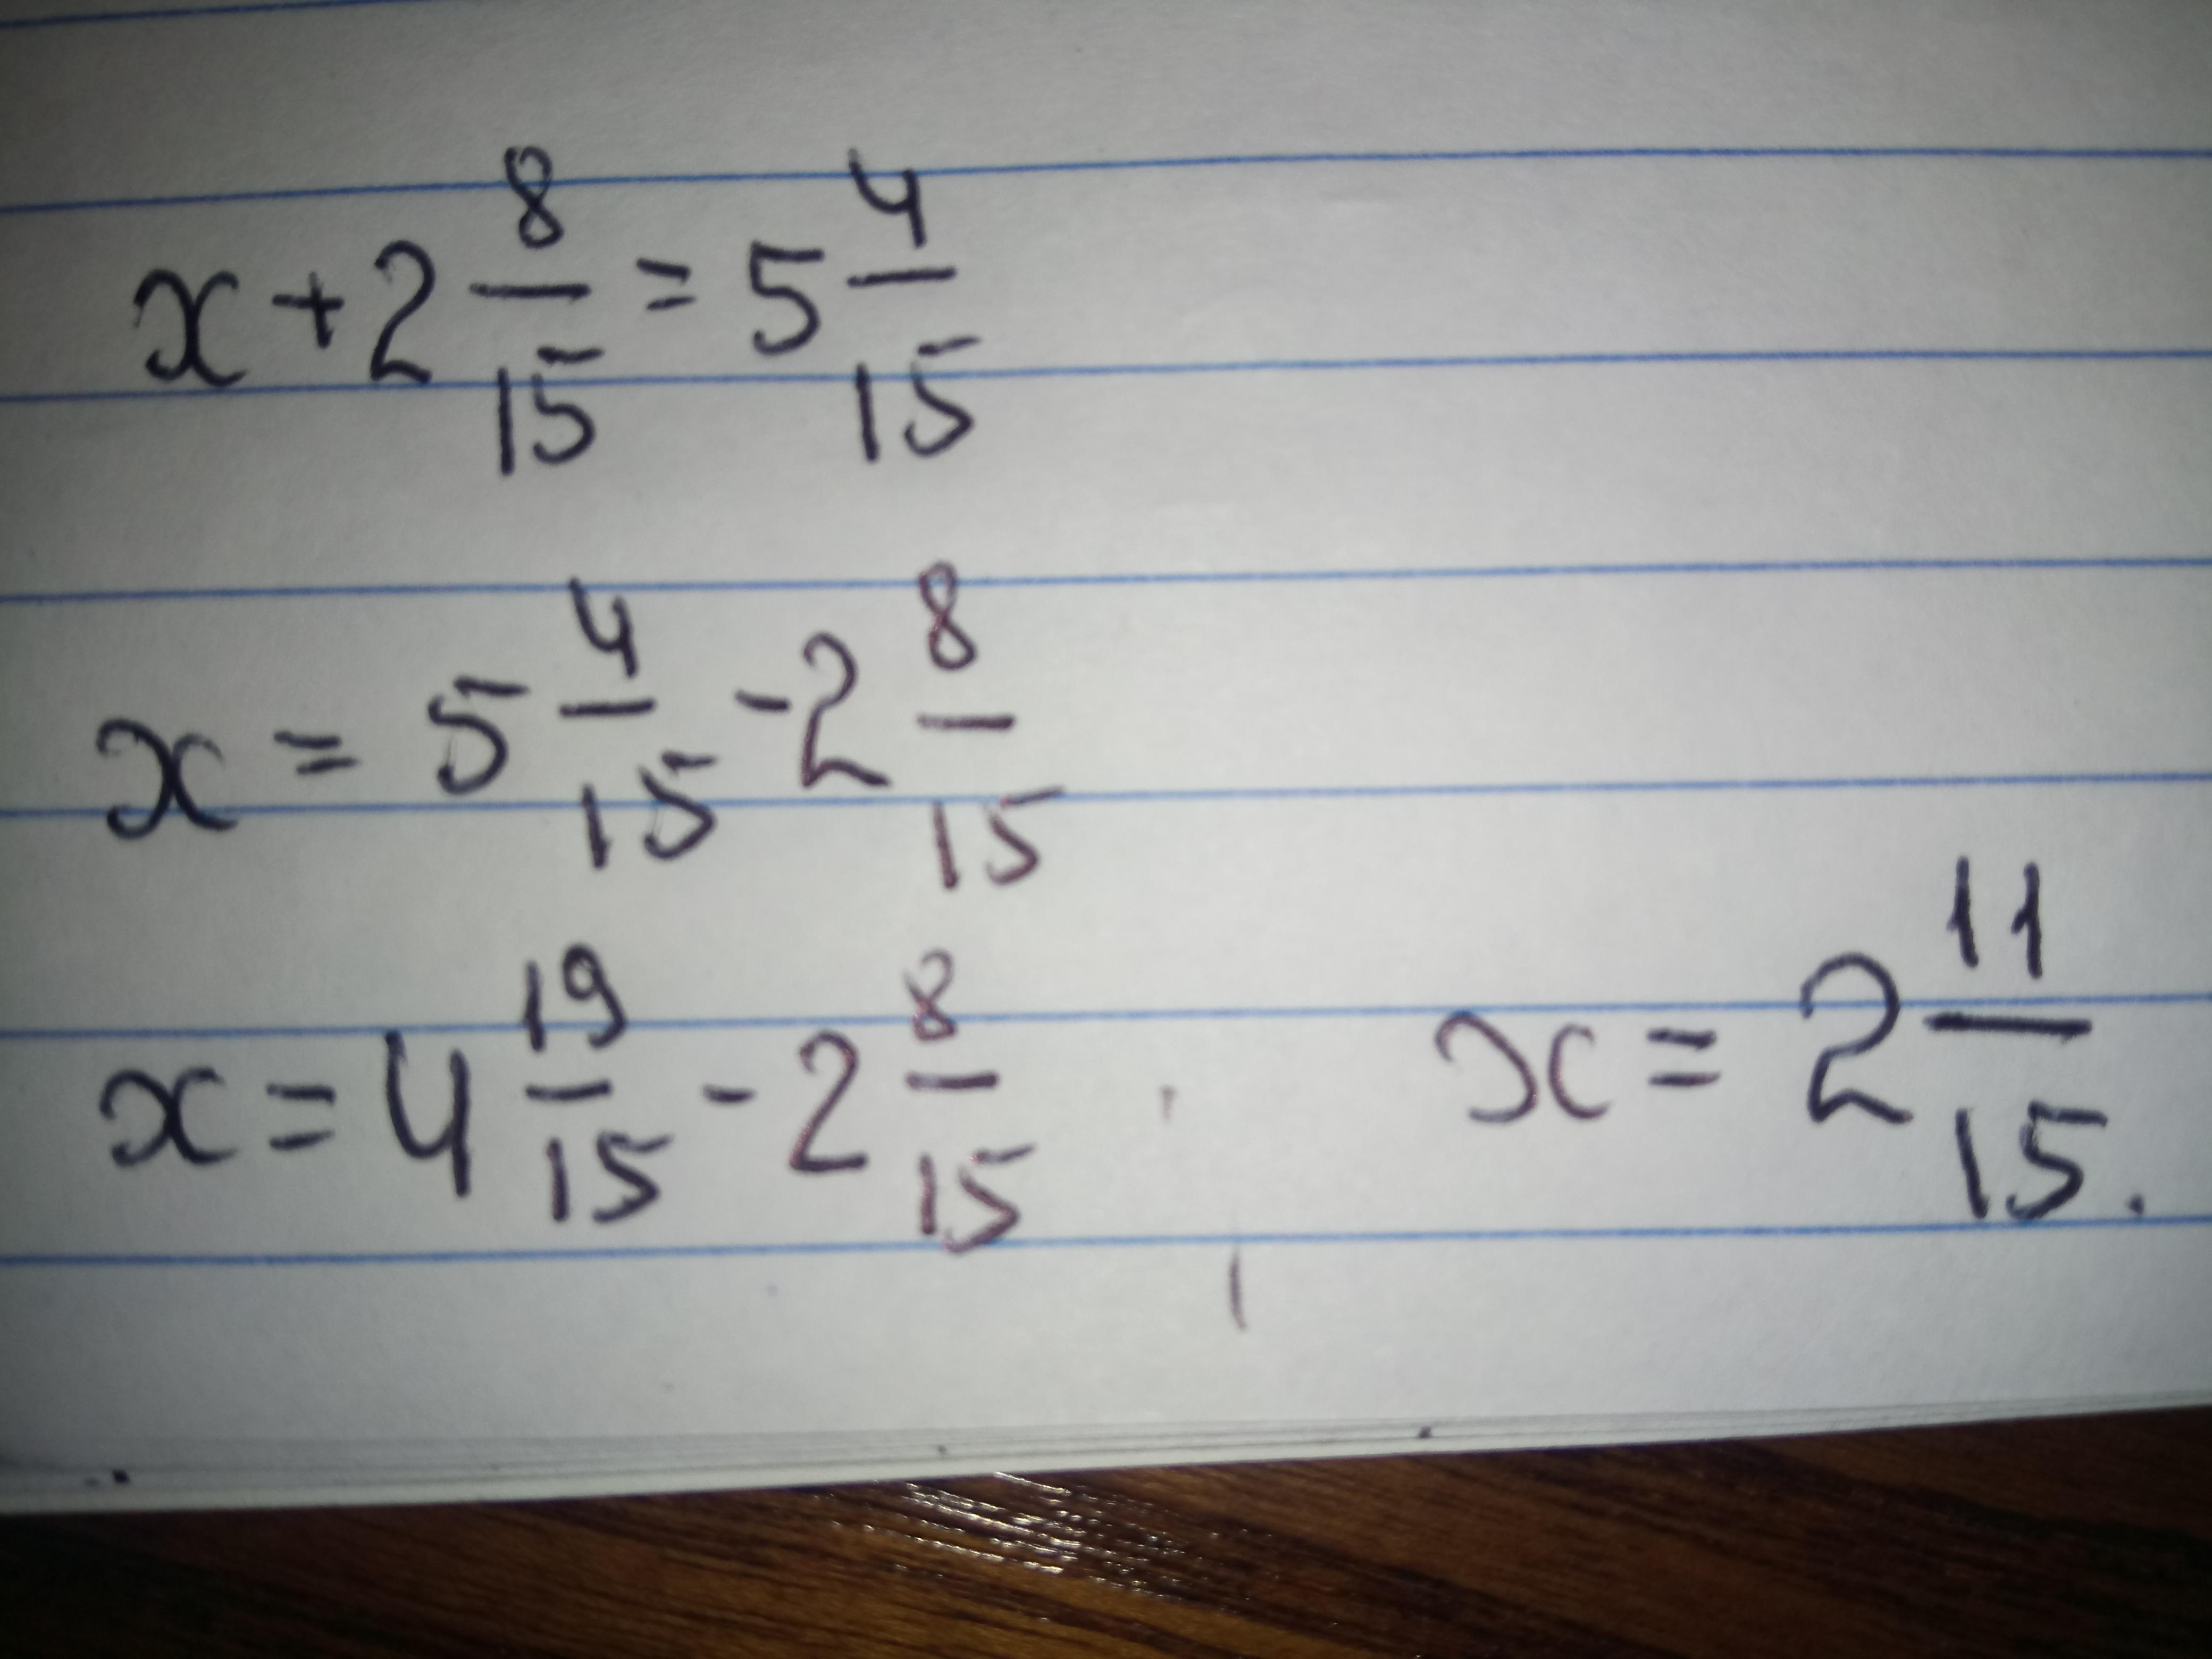 x + 2 8/15 = 5 4/15
x = 5 4/15 - 2 8/15
x = 4 19/15 - 2 8/15
x = 2 11/15.